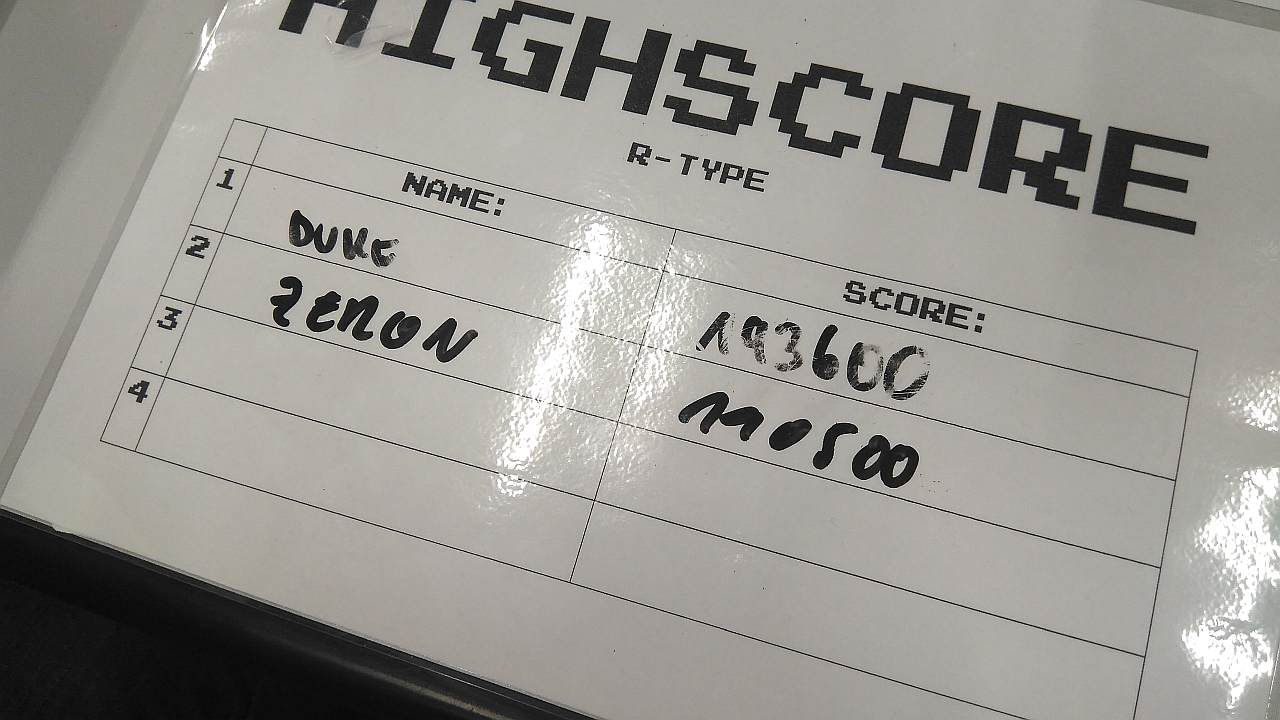 HIGHSCORE
R-TYPE
NAME: SCORE:
1 DUKE 193600
2 ZERON 110500
3
4